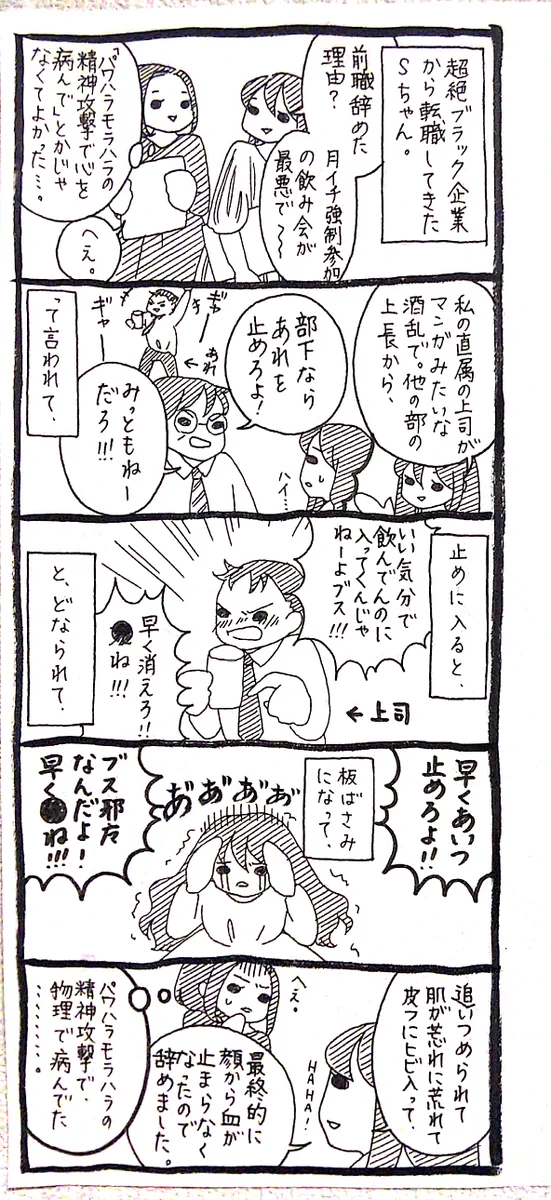 超絶ブラック企業
から転職してきた
Sちゃん。
前職辞めた
理由?
月イチ強制参加
の飲み会が
最悪で〜
「パワハラモラハラの
精神攻撃で心を
病んで」とかじゃ
なくてよかった…。
へえ。
私の直属の上司が
マンガみたいな
酒乱で。他の部の
上長から、
部下なら
あれを
止めろよ!
ハイ…
ギャー
ギャー
←あれ
みっともねー
だろ!!!
って言われて、
止めに入ると、
いい気分で
飲んでんのに
入ってくんじゃ
ねーよブス!!!
←上司
早く消えろ!!
●ね!!!
と、どなられて、
早くあいつ
止めろよ!!
板ばさみ
になって、
あ゛あ゛あ゛あ゛
ブス邪魔
なんだよ!
早く●ね!!!
追いつめられて
肌が荒れに荒れて
皮フにヒビ入って、
へぇ。
HAHA!
最終的に
顔から血が
止まらなく
なったので
辞めました。
パワハラモラハラの
精神攻撃で、
物理で病んでた
………。